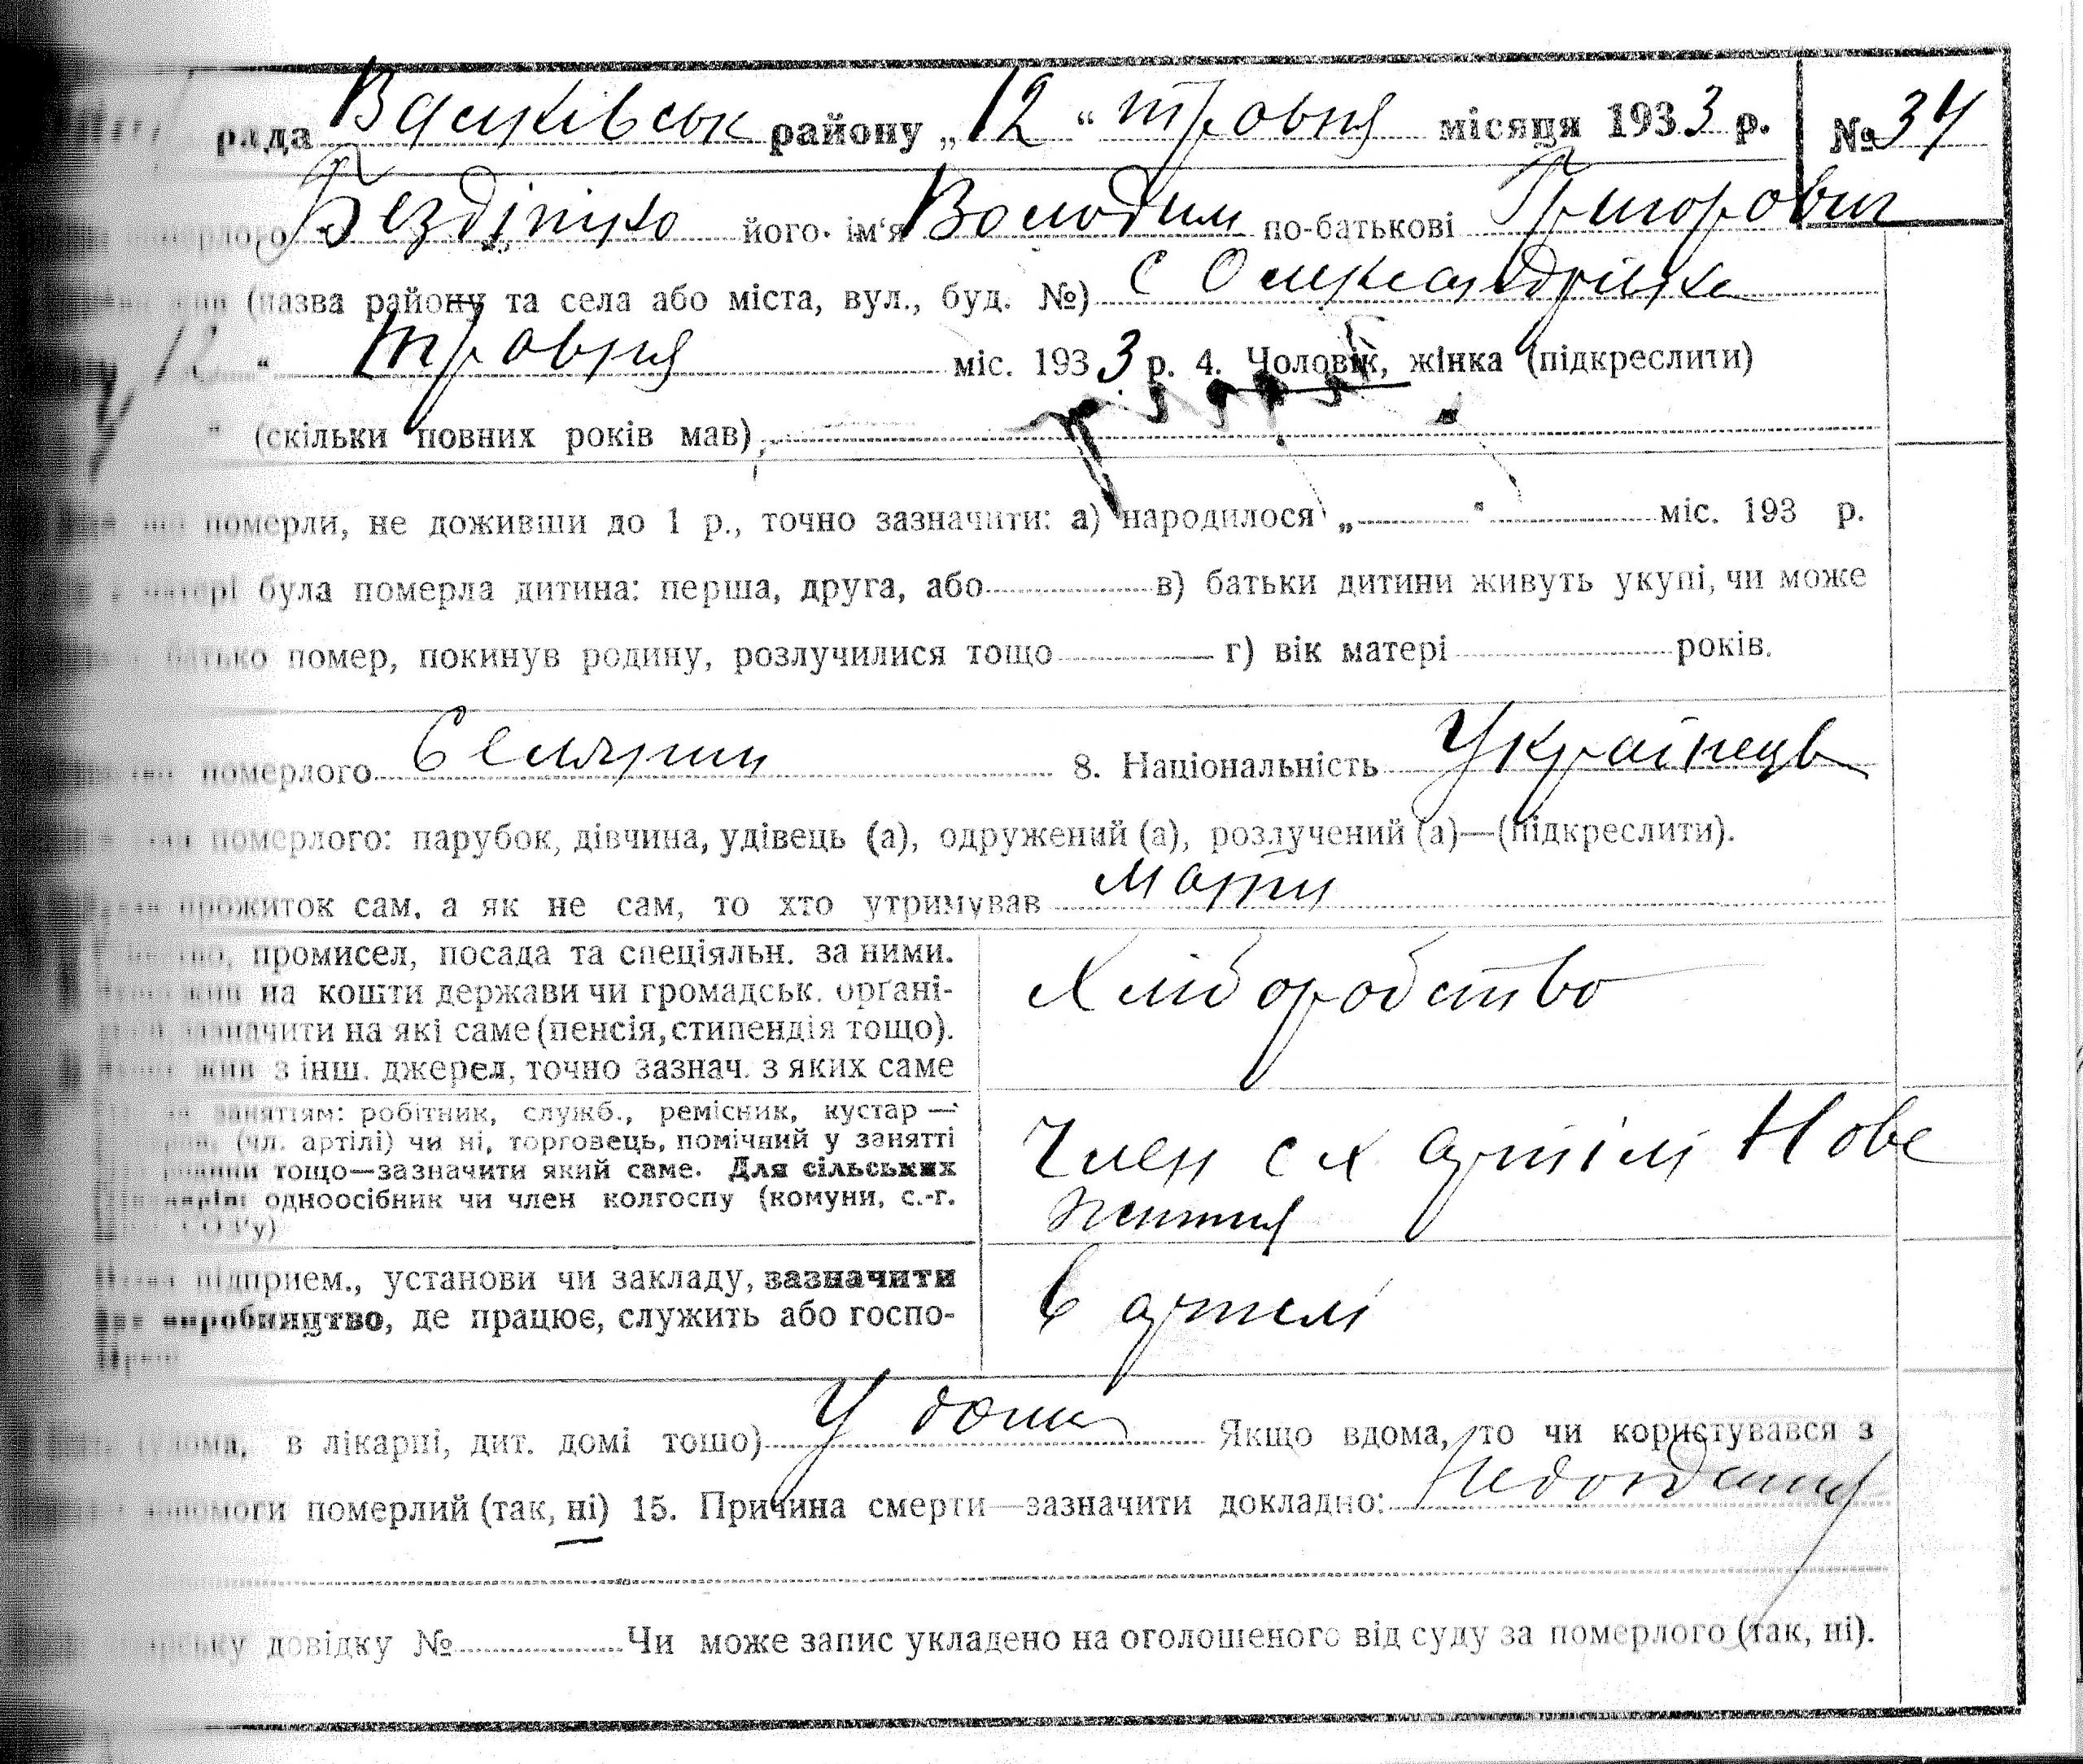 рада Васильківськ району „12“ травня місяця 1933 р. № 34
його ім'я Володим по-батькові Григорович
(назва району та села або міста, вул., буд. №) с Олександрівка
12 “ травня міс. 1933 р. 4. Чоловік, жінка (підкреслити)
“ (скільки повних років мав)
померли, не доживши до 1 р., точно зазначити: а) народилося „ “ міс. 193 р.
матері була померла дитина: перша, друга, або в) батьки дитини живуть укупі, чи може
батько помер, покинув родину, розлучилися тощо г) вік матері років.
померлого Селянин 8. Національність Українець
померлого: парубок, дівчина, удівець (а), одружений (а), розлучений (а)—(підкреслити).
прожиток сам, а як не сам, то хто утримував мати
промисел, посада та спеціяльн. за ними.
жив на кошти держави чи громадськ. органі-
зазначити на які саме (пенсія, стипендія тощо).
жив з інш. джерел, точно зазнач. з яких саме
Хліборобство
заняттям: робітник, служб., ремісник, кустар —
(чл. артілі) чи ні, торговець, помічний у занятті
родини тощо—зазначити який саме. Для сільських
одноосібник чи член колгоспу (комуни, с.-г.
СОЗ'у)
Член с х артілі Нове
життя
підприєм., установи чи закладу, зазначити
виробництво, де працює, служить або госпо-
В артелі
в лікарні, дит. домі тощо) У дома Якщо вдома, то чи користувався з
допомоги померлий (так, ні) 15. Причина смерти—зазначити докладно:
довідку № Чи може запис укладено на оголошеного від суду за померлого (так, ні).